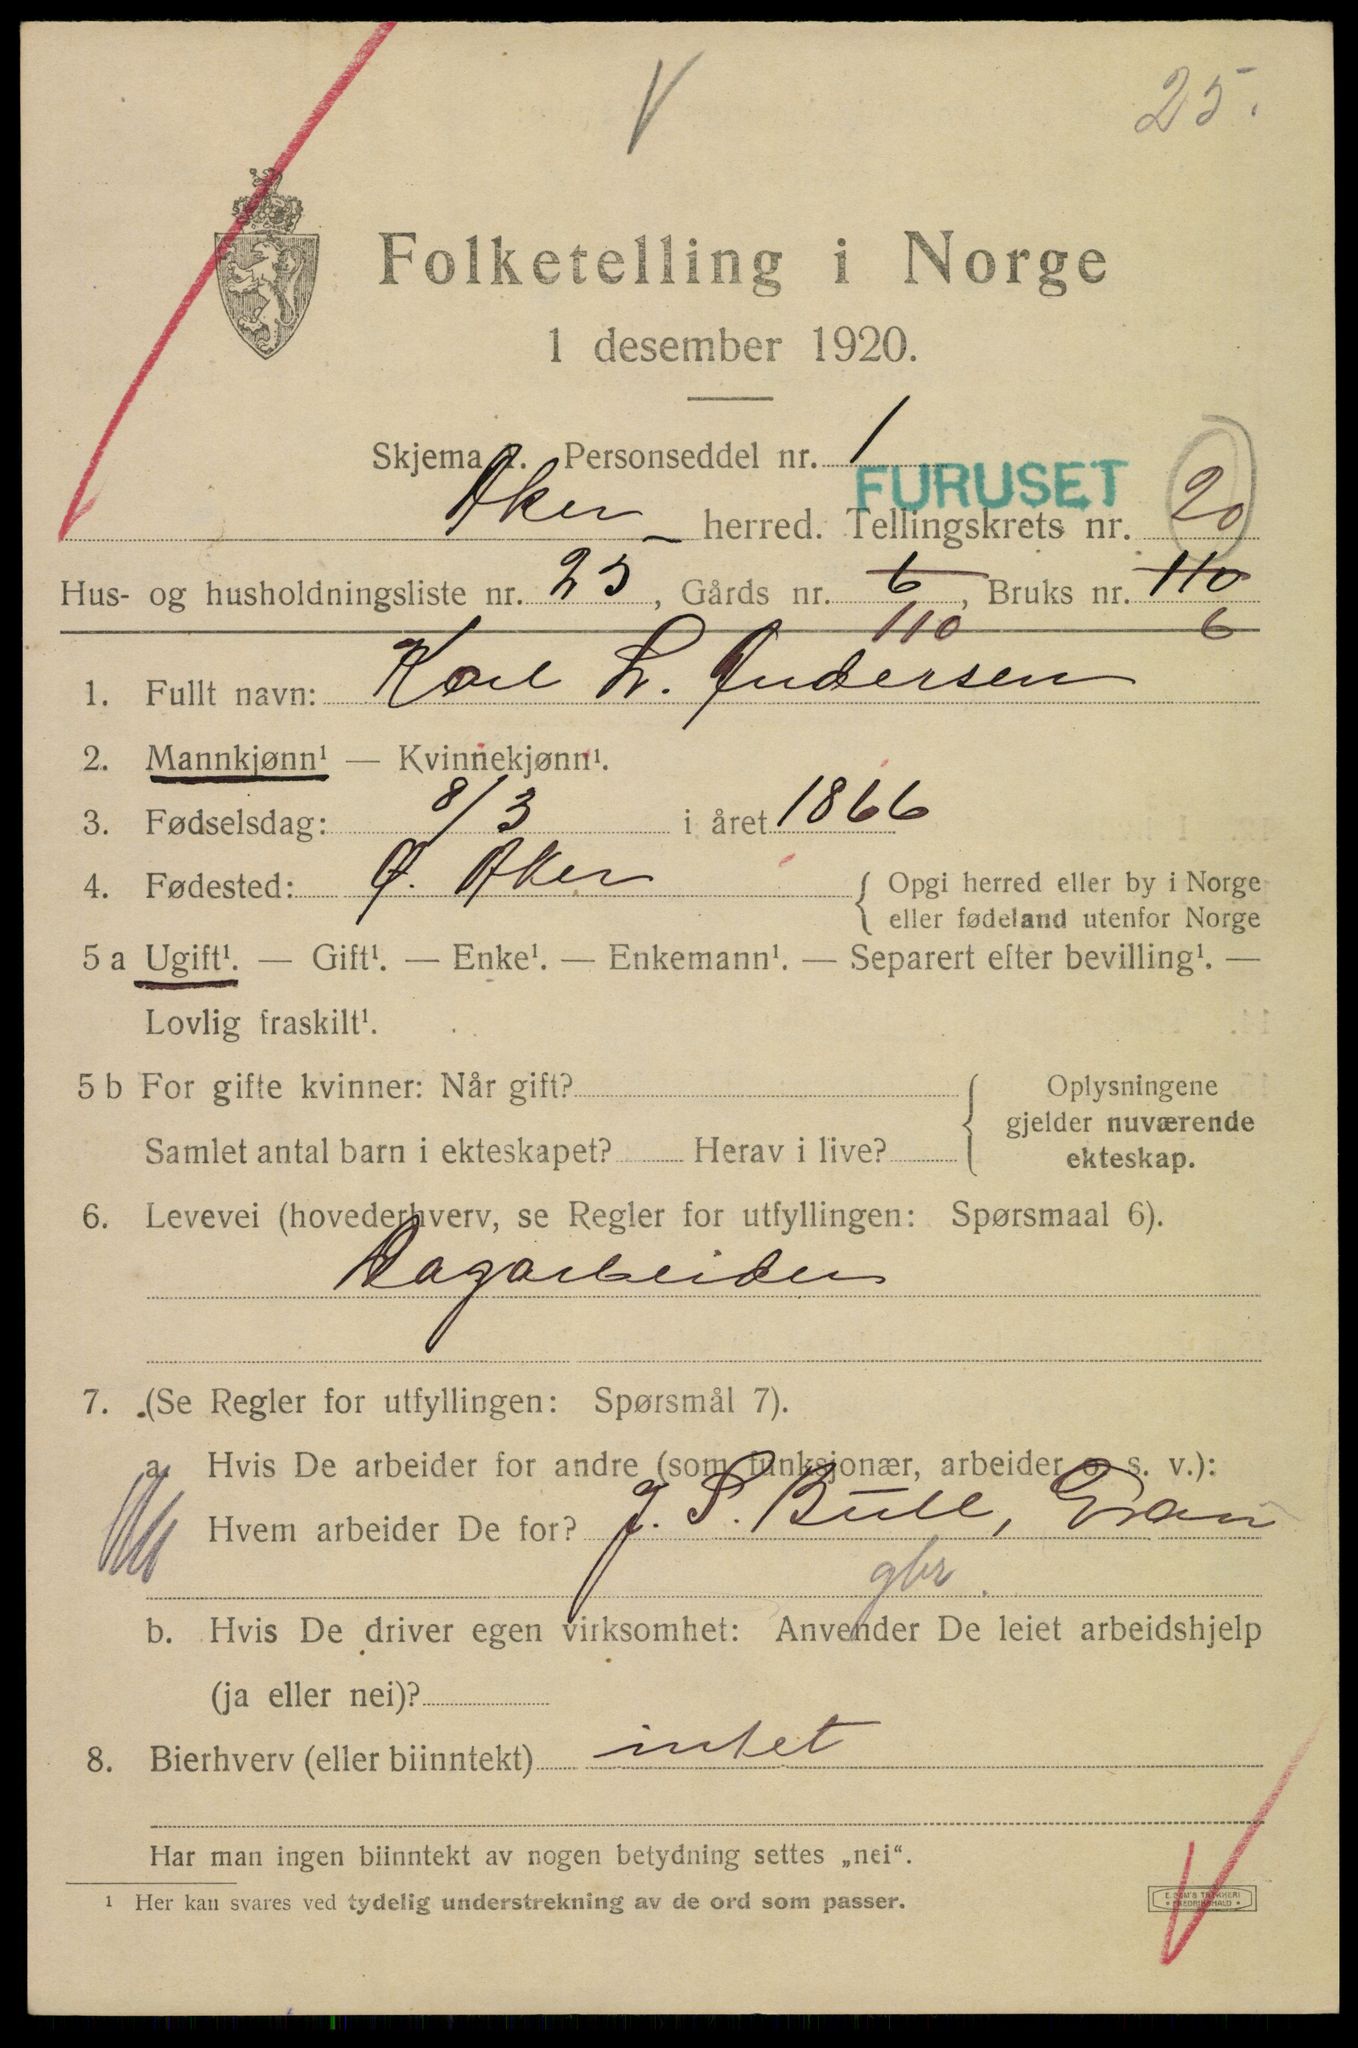 V 25.
Folketelling i Norge
1 desember 1920.
Skjema 1. Personseddel nr. 1
FURUSET
Aker herred. Tellingskrets nr. 20
Hus- og husholdningsliste nr. 25, Gårds nr. 6, Bruks nr. 110
110 6
1. Fullt navn: Karl L. Andersen
2. Mannkjønn¹ — Kvinnekjønn¹.
3. Fødselsdag: 8/3 i året 1866
4. Fødested: Ø. Aker { Opgi herred eller by i Norge
eller fødeland utenfor Norge
5 a Ugift¹. — Gift¹. — Enke¹. — Enkemann¹. — Separert efter bevilling¹. —
Lovlig fraskilt¹.
5 b For gifte kvinner: Når gift? { Oplysningene
gjelder nuværende
Samlet antal barn i ekteskapet? Herav i live? ekteskap.
6. Levevei (hovederhverv, se Regler for utfyllingen: Spørsmaal 6).
Dagarbeider
7. (Se Regler for utfyllingen: Spørsmål 7).
a. Hvis De arbeider for andre (som funksjonær, arbeider o. s. v.):
Hvem arbeider De for? J. S. Bull, Gran
gbr.
b. Hvis De driver egen virksomhet: Anvender De leiet arbeidshjelp
(ja eller nei)?
8. Bierhverv (eller biinntekt) intet
Har man ingen biinntekt av nogen betydning settes „nei“.
¹ Her kan svares ved tydelig understrekning av de ord som passer.
E. SEM'S TRYKKERI
FREDRIKSHALD